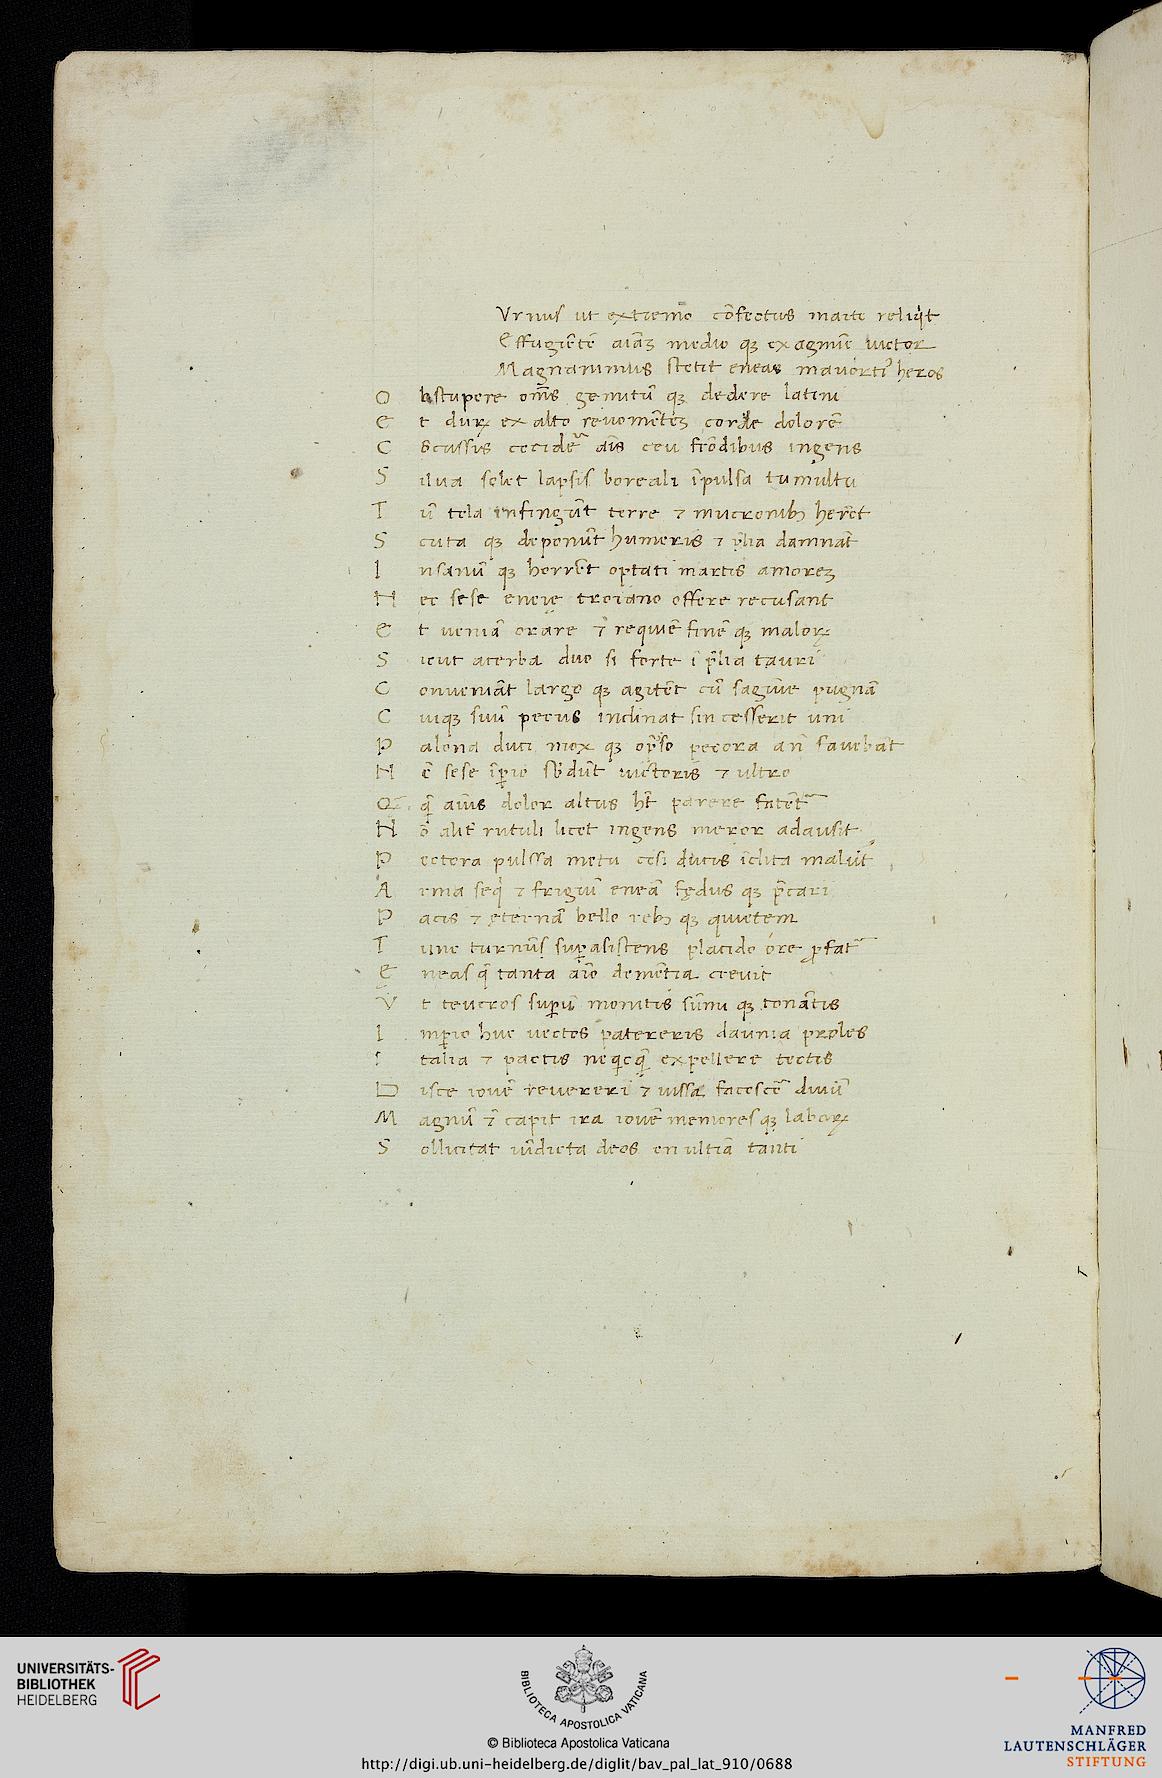 Vrnus ut extremo cōfectus marte reliq̇t
Effugiētē aīaȝ medio qȝ ex agmīe victor
Magnanimus stetit eneas mavorti᾽ heros
O bstupere om̄s gemitū qȝ dedere latini
E t duꝝ ex alto revomētes corde dolorē
C ōcussis cecidēr aīs ceu frōdibus ingens
S ilva solet lapsis boreali īpulsa tumultu
T ū tela infingūt terre ⁊ mucronibȝ herēt
S cuta qȝ deponūt humeris ⁊ p̄lia damnāt
I nsanū qȝ horrēt optati martis amoreȝ
N ec sese eneie troiano offere recusant
E t veniā orare ⁊ requiē finē qȝ maloꝝ
S icut acerba duo si forte ī p̄lia tauri
C onveniāt largo qȝ agitēt cū sagīne pugnā
C uiqȝ suū pecus inclinat sin cesserit uni
P alona duci mox qȝ op̄so pecora an̄ favebāt
N c̄ sese īꝑio sb̄dūt victoris ⁊ ultro
Q q̄ aīus dolor altus hꝫ parere fatēt
N ō alit̄ rutuli licet ingens meror adausit
P ectora pulssa metu cesi ducis īclita malūt
A rma seq̇ ⁊ frigiū eneā fędus qȝ p̄cari
P acis ⁊ ęternā bello rebȝ qȝ quietem
T unc turnūs suꝑasistens placido ore ꝓfat
E neas q̄ tanta aīo demētia crevit
V t teucros suꝑū monitis sūmi qȝ tonātis
I mꝑio huc vectos patereris daunia proles
I talia ⁊ pactis neq̇cq̄ expellere tectis
D isce iovē revereri ⁊ iussa facescē divū
M agnū ⁊ capit ira iovē memores qȝ laboꝝ
S ollicitat vīdicta deos en ultīa tanti
UNIVERSITÄTS-
BIBLIOTHEK
HEIDELBERG
BIBLIOTECA APOSTOLICA VATICANA
© Biblioteca Apostolica Vaticana
http://digi.ub.uni-heidelberg.de/diglit/bav_pal_lat_910/0688
MANFRED
LAUTENSCHLÄGER
STIFTUNG